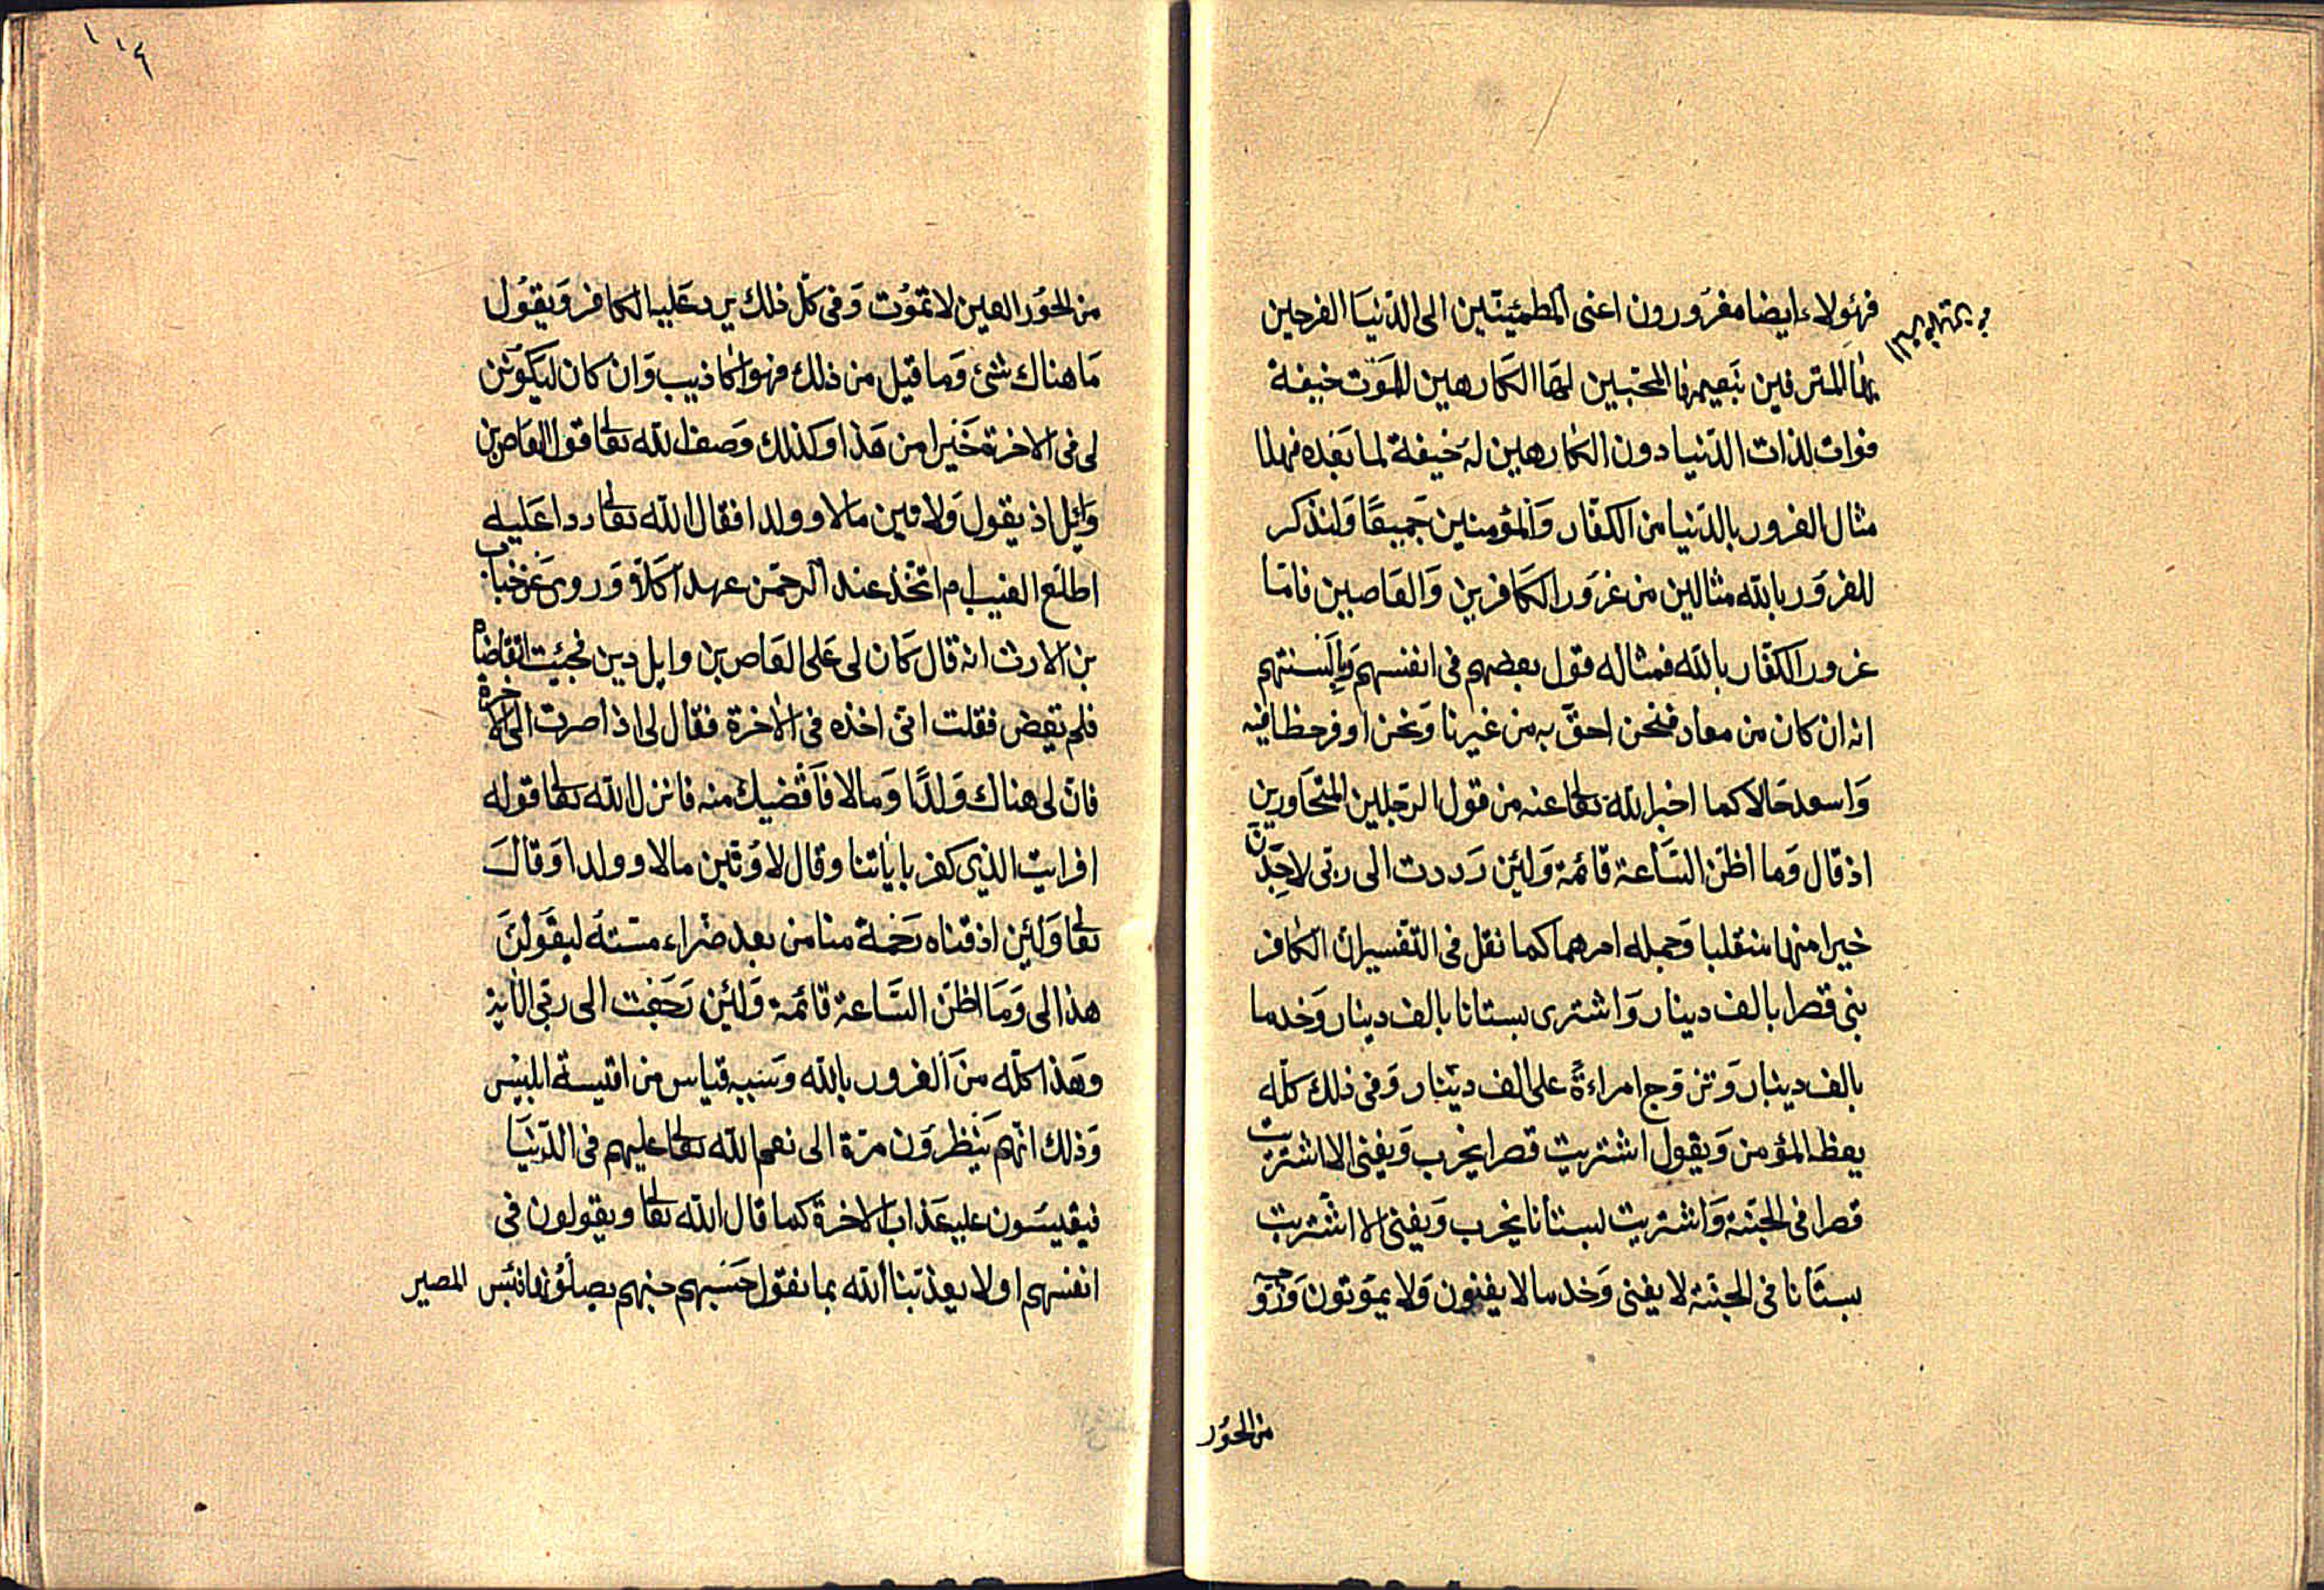 فهؤلاء ايضا مغرورون اعنى المطمئنين الى الدنيا الفرحين
بها المترفين بنعيمها المحبين لها الكارهين للموت خيفة
فوات لذات الدنيا دون الكارهين له خيفة لما بعده فهذا
مثال الغرور بالدنيا من الكفار والمؤمنين جميعا ولنذكر
للغرور بالله مثالين من غرور الكافرين والعاصين فاما
غرور الكفار بالله فمثاله قول بعضهم فى انفسهم وبالسنتهم
انه ان كان من معاد فنحن احق به من غيرنا ونحن اوفر حظا فيه
واسعد حالا كما اخبر الله تعالى عنه من قول الرجلين المتحاورين
اذ قال وما اظن الساعة قائمة ولئن رددت الى ربى لاجدن
خيرا منها منقلبا وجمله امرهما كما نقل فى التفسير ان الكافر
بنى قصرا بالف دينار واشترى بستانا بالف دينار وخدما
بالف دينار وتزوج امراءة على الف دينار وفى ذلك كله
يعظ المؤمن ويقول اشتريت قصرا يخرب ويفنى الا اشتريت
قصرا فى الجنة واشتريت بستانا يخرب ويفنى الا اشتريت
بستانا فى الجنة لا يفنى وخدما لا يفنون ولا يموتون وزوجه
من الحور
١٠٤
من الحور العين لا تموت وفى كل ذلك يرد عليه الكافر ويقول
ما هناك شئ وما قيل من ذلك فهو اكاذيب وان كان ليكونن
لى فى الاخرة خيرا من هذا وكذلك وصف الله تعالى قول العاص بن
وائل اذ يقول ولاوتين مالا وولدا فقال الله تعالى ردا عليه
اطلع الغيب ام اتخذ عند الرحمن عهدا كلا وروى عن خباب
بن الارث انه قال كان لى على العاص بن وايل دين فجئت اتقاضاه
فلم يقض فقلت انى اخذه فى الاخرة فقال لى اذا صرت الى الاخرة
فان لى هناك ولدا ومالا فاقضيك منه فانزل الله تعالى قوله
افرايت الذى كفر باياتنا وقال لاوتين مالا وولدا وقال
تعالى ولئن اذقناه رحمة منا من بعد ضراء مسته ليقولن
هذا لى وما اظن الساعة قائمة ولئن رجعت الى ربى
وهذا كله من الغرور بالله وسببه قياس من اقيسة ابليس
وذلك انهم ينظرون مرة الى نعم الله تعالى عليهم فى الدنيا
فيقيسون عليه عذاب الاخرة كما قال الله تعالى ويقولون فى
انفسهم لولا يعذبنا الله بما نقول حسبهم جهنم يصلونها فبئس المصير